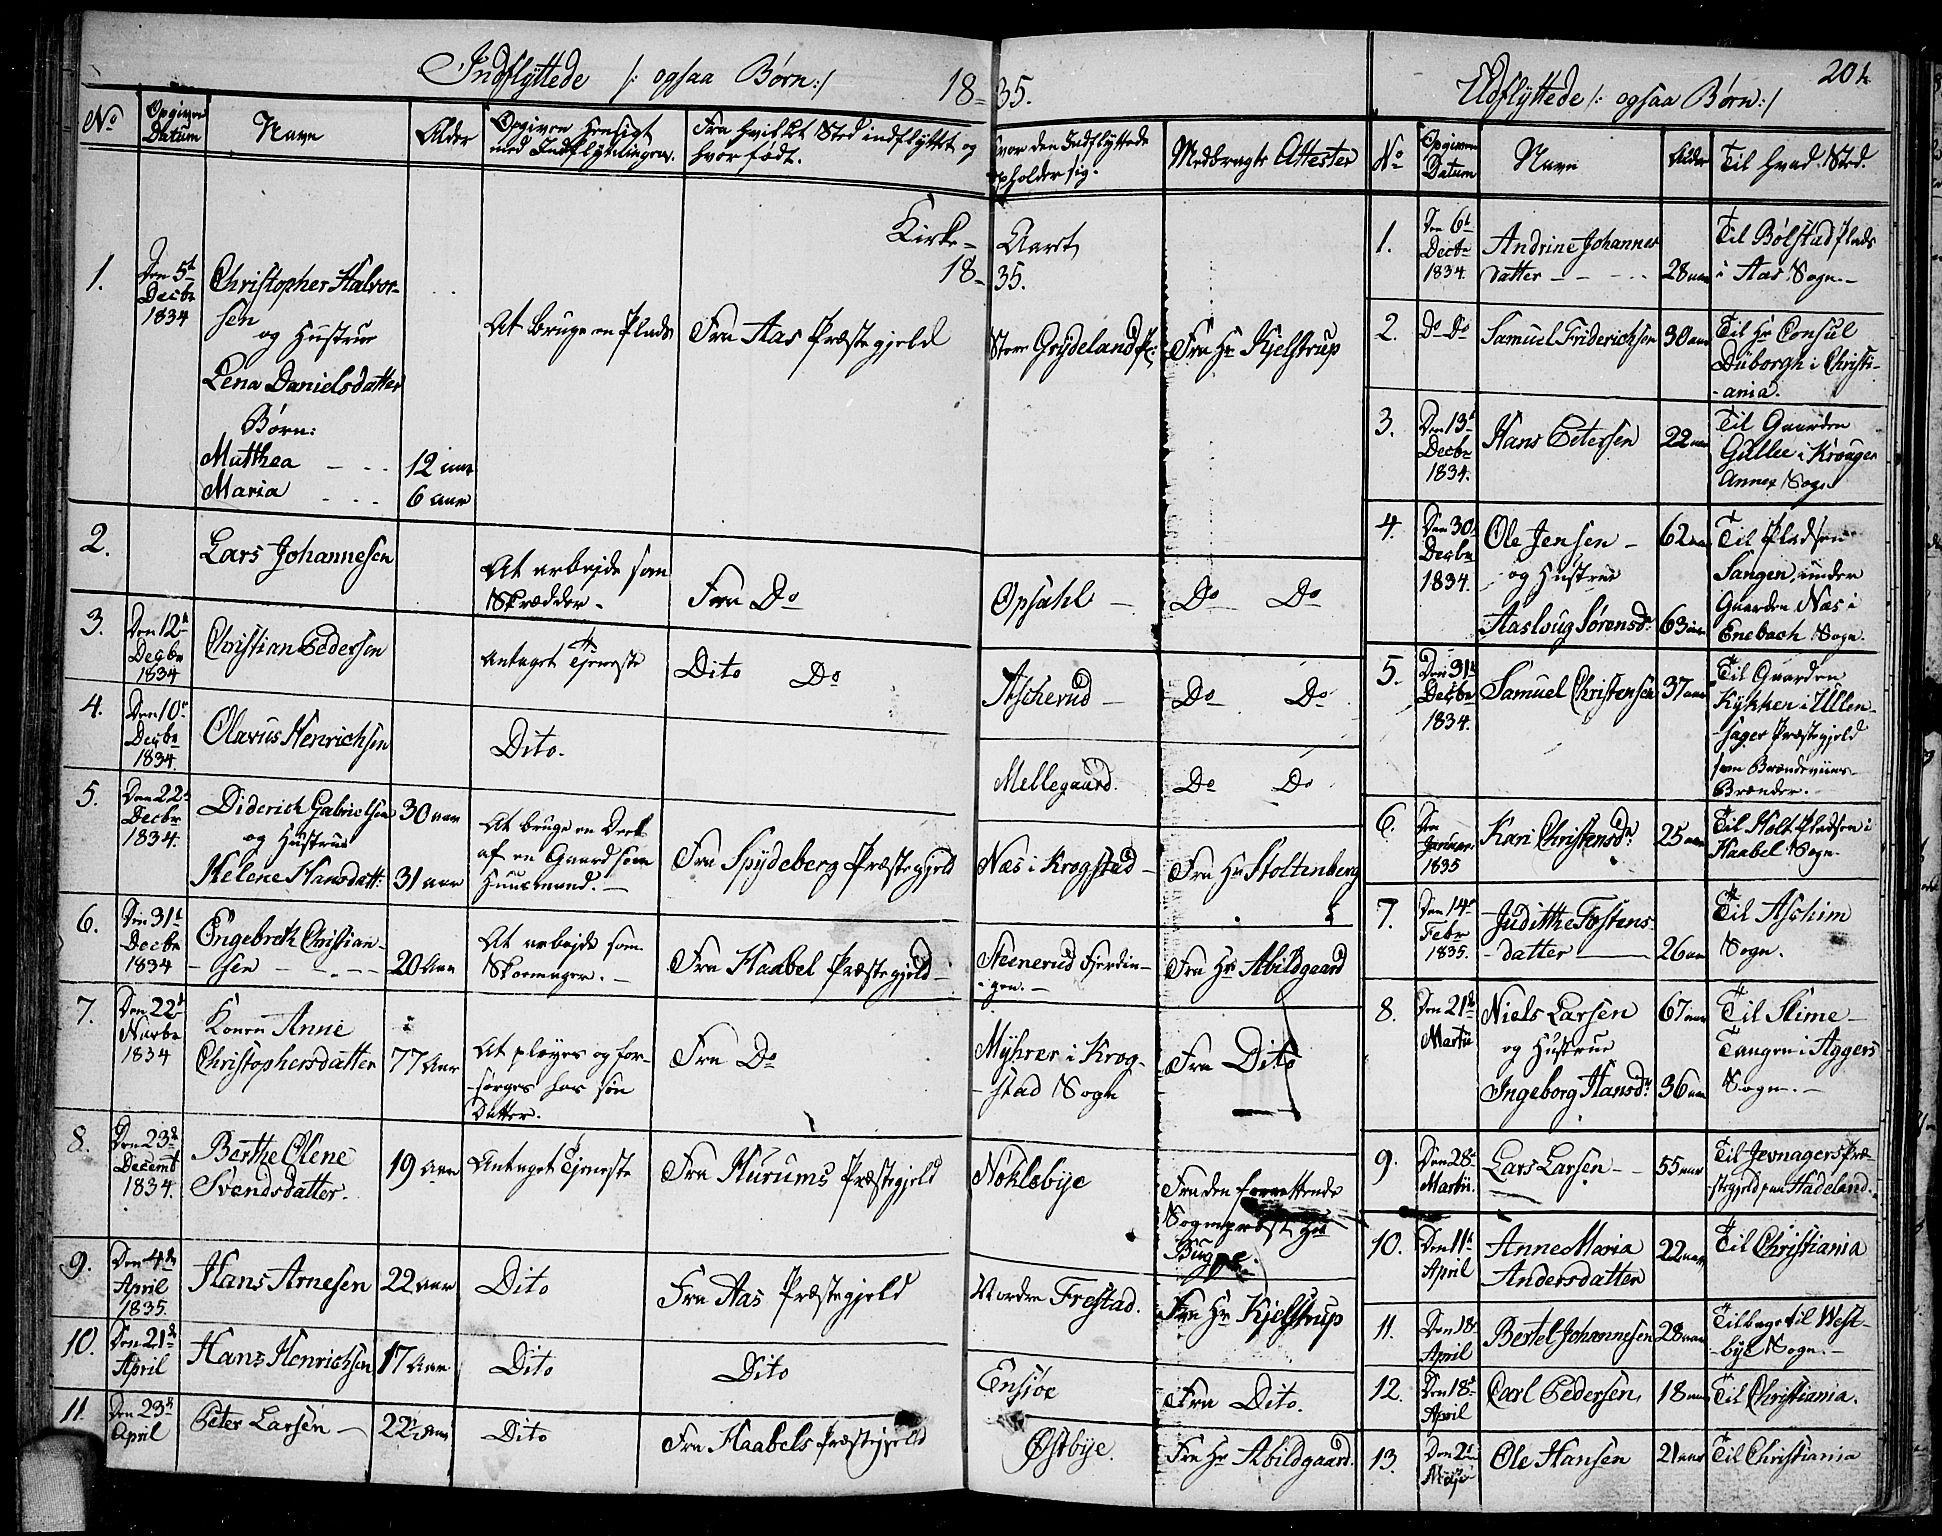 Indflyttede /: ogsaa Børn:/ 18-35.
No
Opgiven Datum
Navn
Alder
Opgiven Hensigt med Indflytningen.
Fra hvilket Sted indflyttet og hvor født.
Hvor den Indflyttede opholder sig.
Medbragte Attester
Kirke- Aaret
18- 35.
1.
Den 5t
Decbr
1834
Christopher Halvor-
sen
og Hustrue
Lena Danielsdatter
Børn:
Matthea - - - 12 aar
Maria - - - 6 aar
At bruge en Plads
Fra Aas Præstegjeld
Store Grydeland Pl:
Fra Hr Kjelstrup
2.
Lars Johannesen
At arbejde som
Skrædder.
Fra Do
Opsahl
Do Do
3.
Den 12t
Decbr
1834
Christian Pedersen
Antaget Tjeneste
Dito Do
Ascherud
Do Do
4.
Den 10t
Decbr
1834.
Olavus Henrichsen
Dito.
Mellegaard.
Do Do
5.
Den 22t
Decbr
1834.
Diderich Gabrielsen 30 aar
og Hustrue
Helene Hansdatt: 31 aar
At bruge en Deel
af en Gaard som
Huusmand.
Fra Spydeberg Præstegjeld
Næs i Krogstad
Fra Hr Stoltenberg
6.
Den 31t
Decbr
1834
Engebreth Christian-
-sen - - - 20 Aar
At arbejde som
Skoemager.
Fra Haabel Præstegjeld
Steenerud Fjerdin-
gen.
Fra Hr Abildgaard
7.
Den 22t
Novbr
1834
Konen Anne
Christophersdatter 77 Aar
At pleyes og for-
sørges hos sin
Datter.
Fra Do
Myhrer i Krog-
-stad Sogn
Fra Dito
8.
Den 23de
Decemb
1834.
Berthe Olene
Svendsdatter.
19 aar
Antaget Tjeneste
Fra Hurums Præstegjeld
Nøklebye
Fra den forrettende
Sognepræst Hr
Bugge.
9.
Den 4de
April
1835.
Hans Arnesen
22 aar
Dito
Fra Aas Præstegjeld
Nordre Frestad.
Fra Hr Kjelstrup
10.
Den 21de
April
Hans Henrichsen
17 Aar
Dito
Dito
Ensjøe
Fra Dito.
11.
Den 23de
April
Peter Larsen
22 Aar
Dito
Fra Haabels Præstegjeld
Østbye.
Fra Hr Abildgaard.
Udflyttede /: ogsaa Børn:/
204
No
Opgiven Datum
Navn
Alder
Til hvad Sted.
1.
Den 6t
Decbr
1834.
Andrine Johannes
datter - - - 28 aar
Til Bølstad Plads
i Aas Sogn.
2.
Do Do
Samuel Friderichsen 30 aar
Til Hr Consul
Duborgh i Christi-
-ania.
3.
Den 13t
Decbr
1834.
Hans Petersen
22 aar
Til Gaarden
Gullee i Kroager
Annex Sogn
4.
Den 30t
Decbr
1834.
Ole Jensen - 62 aar
og Hustrue
Aasloug Sørensd: 63 aar
Til Pladsen
Tangen under
Gaarden Næs i
Enebach Sogn.
5.
Den 31te
Decbr
1834.
Samuel Christensen 37 aar
Til Gaarden
Kykken i Ullen-
-sager Præstegjeld
som Brændeviins-
Brænder.
6.
Den
Januar
1835
Kari Christensdr
25 aar
Til Holt Pladsen i
Haabel Sogn.
7.
Den 14t
Febr
1835.
Judithe Tostens-
-datter
26 aar
Til Aschim
Sogn.
8.
Den 21de
Martii
Niels Larsen 67 aar
og Hustrue
Ingeborg Hansdr 36 aar
Til Slime-
Tangen i Aggers
Sogn.
9.
Den 28t
Martii.
Lars Larsen - 55 aar
Til Jevnagers Præ-
stegjeld paa Hadeland.
10.
Den 11t
April
Anne Maria
Andersdatter
22 aar
Til Christiania
11.
Den 18t
April
Bertel Johannesen 28 aar
Tilbage til West-
-bye Sogn.
12.
Den 18t
April
Carl Pedersen, 18 aar
Til Christiania.
13.
Den 2t
Maji
Ole Hansen
21 aar
Til Christiania